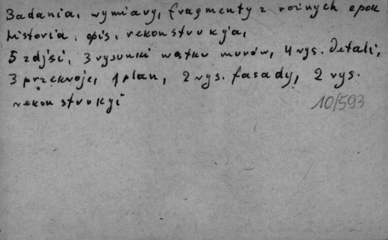 Badania, wymiary, fragmenty z różnych epok
historia, opis, rekonstrukcja,
5 zdjęć, 3 rysunki wątku murów, 4 rys. detali,
3 przekroje, 1 plan, 2 rys. fasady, 2 rys.
rekonstrukcji
10/593